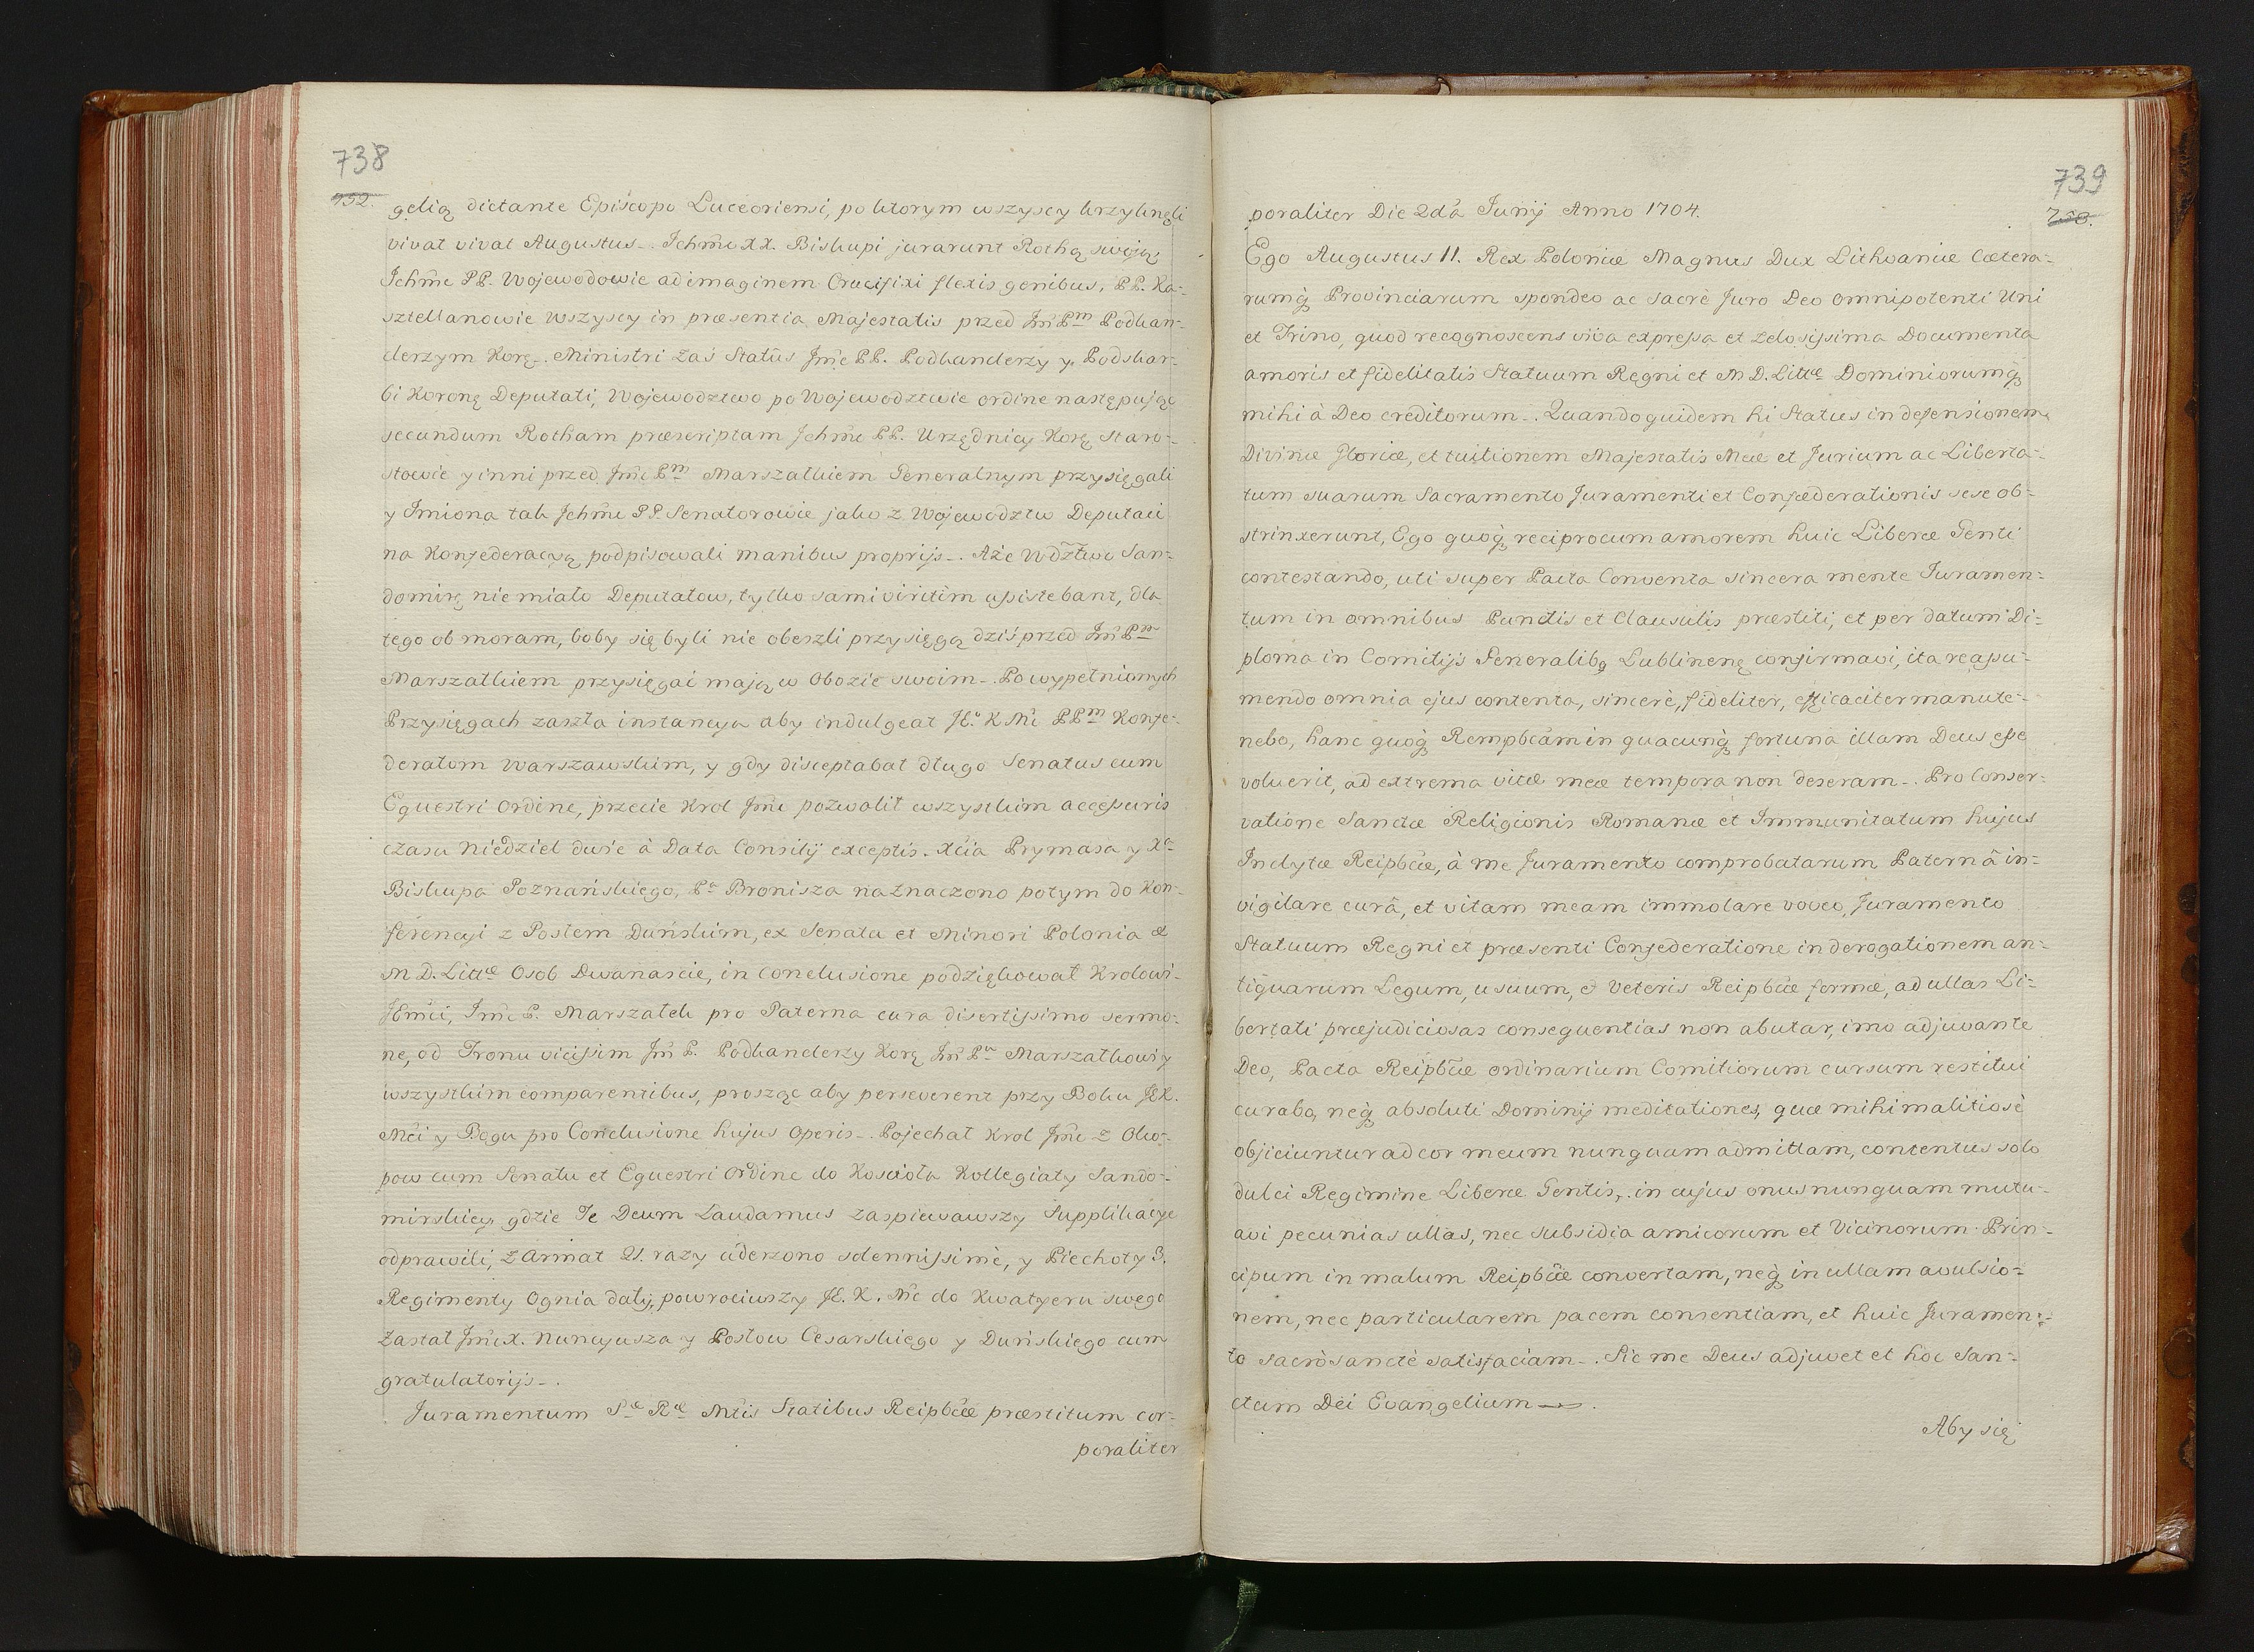 738
752.
gelią dictante Episcopo Luceoriensi, po ktorym wszyscy krzyknęli
vivat vivat Augustus-. Jchmć XX. Biskupi jurarunt Rothą swoją,
Jchmć PP. Wojewodowie ad imaginem Crucifixi flexis genibus, PP. Ka-
sztellanowie wszyscy in præsentia Majestatis przed Jm̃ Pm Podkan-
clerzym Korę-. Ministri zaś Statûs Jmć PP. Podkanclerzy y Podskar-
bi Koronę Deputati, Wojewodztwo po Wojewodztwie ordine następując
secundum Rotham præscriptam Jchmć PP. Urzędnicy Korę Staro-
stowie y inni przed Jmć Pm Marszałkiem Generalnym przysięgali
y Imiona tak Jchmć PP. Senatorowie jako z Wojewodztw Deputaci
na Konfederacyą podpisowali manibus proprijs-. Aże Wdztwo San-
domirę nie miało Deputatow, tylko sami viritim assistebant, dla
tego ob moram, boby się byli nie obeszli przysięgą dziś przed Jm̃ Pm
Marszałkiem przysięgać mają w Obozie swoim-. Po wypełnionych
Przysięgach zaszła instancya aby indulgeat JE. K Mć PPm Konfe-
deratom Warszawskim, y gdy disceptabat długo Senatus cum
Equestri Ordine, przecie Krol Jmć pozwolił wszystkim accessuris
czasu Niedziel dwie à Data Consilij exceptis. Xcia Prymasa y Xa
Biskupa Poznańskiego, Pa Bronisza naznaczono potym do Kon-
ferencyi z Posłem Duńskim, ex Senatu et Minori Polonia &
M D. Littæ Osob Dwanascie, in conclusione podziękował Krolowi-
JEmći, Jmć P. Marszałek pro Paterna cura disertissimo sermo-
ne, od Tronu vicissim Jm̃ P. Podkanclerzy Korę Jm̃ Pu Marszałkowi y
wszystkim comparentibus, prosząc aby perseverent przy Boku JEK.
Mći y Bogu pro Conclusione hujus Operis-. Pojechał Krol Jmć z Oko-
pow cum Senatu et Equestri Ordine do Kościoła Kollegiaty Sando-
mirskiey gdzie Te Deum Laudamus zaspiewawszy Supplikacye
odprawili, z Armat 21. razy uderzono solennissimè, y Piechoty 3.
Regimenty Ognia dały, powrociwszy JE. K. Mć do Kwatyeru swego
zastał Jmć X. Nuncyusza y Posłow Cesarskiego y Duńskiego cum
gratulatorijs-.
Juramentum Sæ Ræ Mtis Statibus Reipbcæ præstitum cor-
poraliter
739
poraliter Die 2dâ Junij Anno 1704.
Ego Augustus II. Rex Poloniæ Magnus Dux Lithvaniæ Cætera-
rumq; Provinciarum spondeo ac sacrè Juro Deo Omnipotenti Uni
et Trino, quod recognoscens viva expressa et zelosissima Documenta
amoris et fidelitatis Statuum Regni et M D. Littæ Dominiorumq;
mihi à Deo creditorum-. Quandoquidem hi Status in defensionem
Divinæ Gloriæ, et tuitionem Majestatis Meæ et Jurium ac Liberta-
tum suarum Sacramento Juramenti et Confæderationis sese ob-
strinxerunt, Ego quoq; reciprocum amorem huic Liberæ Genti
contestando, uti super Pacta Conventa sincera mente Juramen-
tum in omnibus Punctis et Clausulis præstiti, et per datum Di-
ploma in Comitijs Generalibq Lublinenę confirmavi, ita reassu-
mendo omnia ejus contenta, sincerè, fideliter, efficaciter manute-
nebo, hanc quoq; Rempbcãm in quacunq; fortuna illam Deus esse
voluerit, ad extrema vitæ meæ tempora non deseram-. Pro Conser-
vatione Sanctæ Religionis Romanæ et Immunitatum hujus
Inclytæ Reipbcæ, à me Juramento comprobatarum Paternâ in-
vigilare curâ, et vitam meam immolare voveo, Juramento
Statuum Regni et præsenti Confederatione in derogationem an-
tiquarum Legum, usuum, & Veteris Reipbcæ formæ, ad ullas Li-
bertati præjudiciosas consequentias non abutar, imo adjuvante
Deo, Pacta Reipbcæ ordinarium Comitiorum cursum restitui
curabo, neq; absoluti Dominij meditationes, quæ mihi malitiosè
objiciuntur ad cor meum nunquam admittam, contentus solo
dulci Regimine Liberæ Gentis, in cujus onus nunquam mutu-
avi pecunias ullas, nec subsidia amicorum et Vicinorum Prin-
cipum in malum Reipbcæ convertam, neq; in ullam avulsio-
nem, nec particularem pacem consentiam, et huic Juramen-
to sacrosanctè satisfaciam-. Sic me Deus adjuvet et hoc San-
ctum Dei Evangelium-.
Aby się